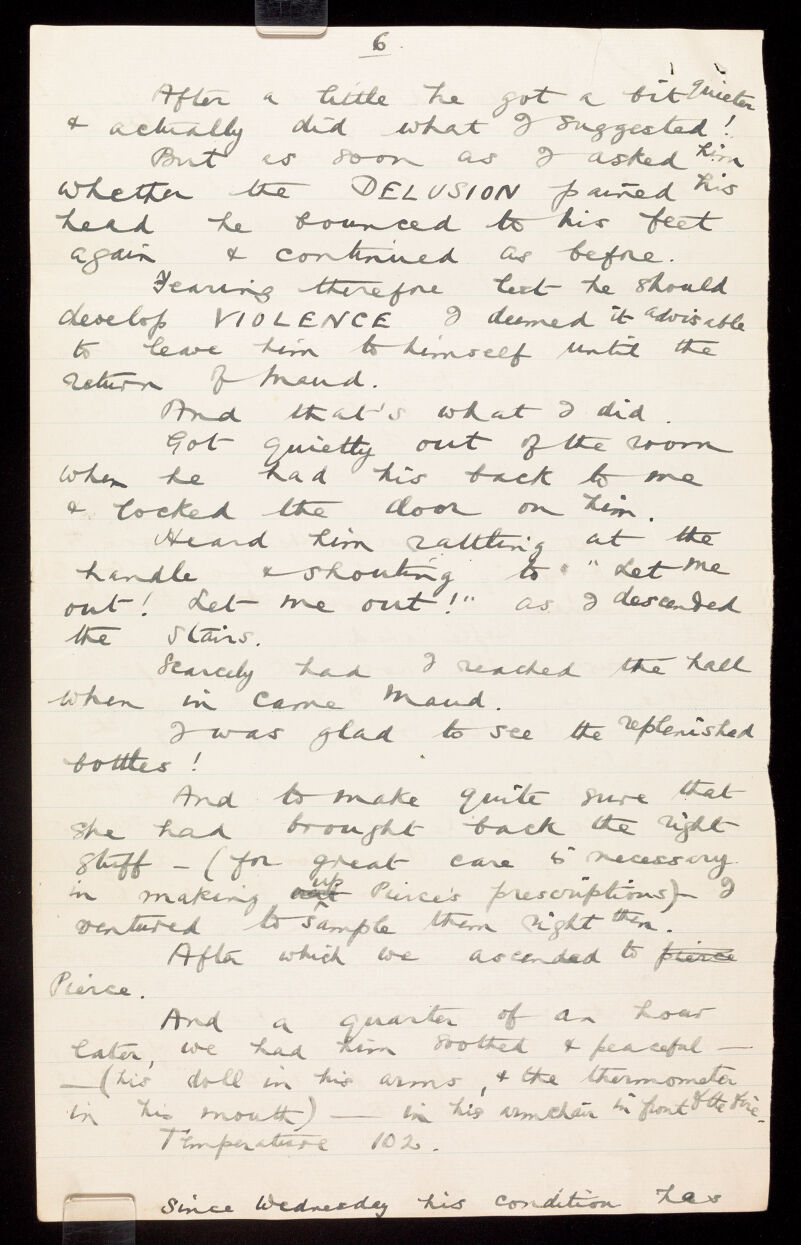 6.
After a little he got a bit quieter
& actually did what I suggested!
But as soon as I asked him
whether the DELUSION pained his
head he bounced to his feet
again & continued as before.
Fearing therefore lest he should
develop VIOLENCE I deemed it advisable
to leave him to himself until the
return of Maud.
And that's what I did.
Got quietly out of the room
when he had his back to me
& locked the door on him.
Heard him rattling at the
handle & shouting to "Let me
out! Let me out!" as I descended
the stairs.
Scarcely had I reached the hall
when in came Maud.
I was glad to see the replenished
bottles!
And to make quite sure that
she had brought back the right
stuff – (for great care is necessary
in making out up Pierce's prescriptions) – I
ventured to sample them right then.
After which we ascended to pierce
Pierce.
And a quarter of an hour
later, we had him soothed & peaceful —
— (his doll in his arms, & the thermometer
in his mouth) — in his armchair in front of the fire.
Temperature 102.
Since Wednesday his condition has